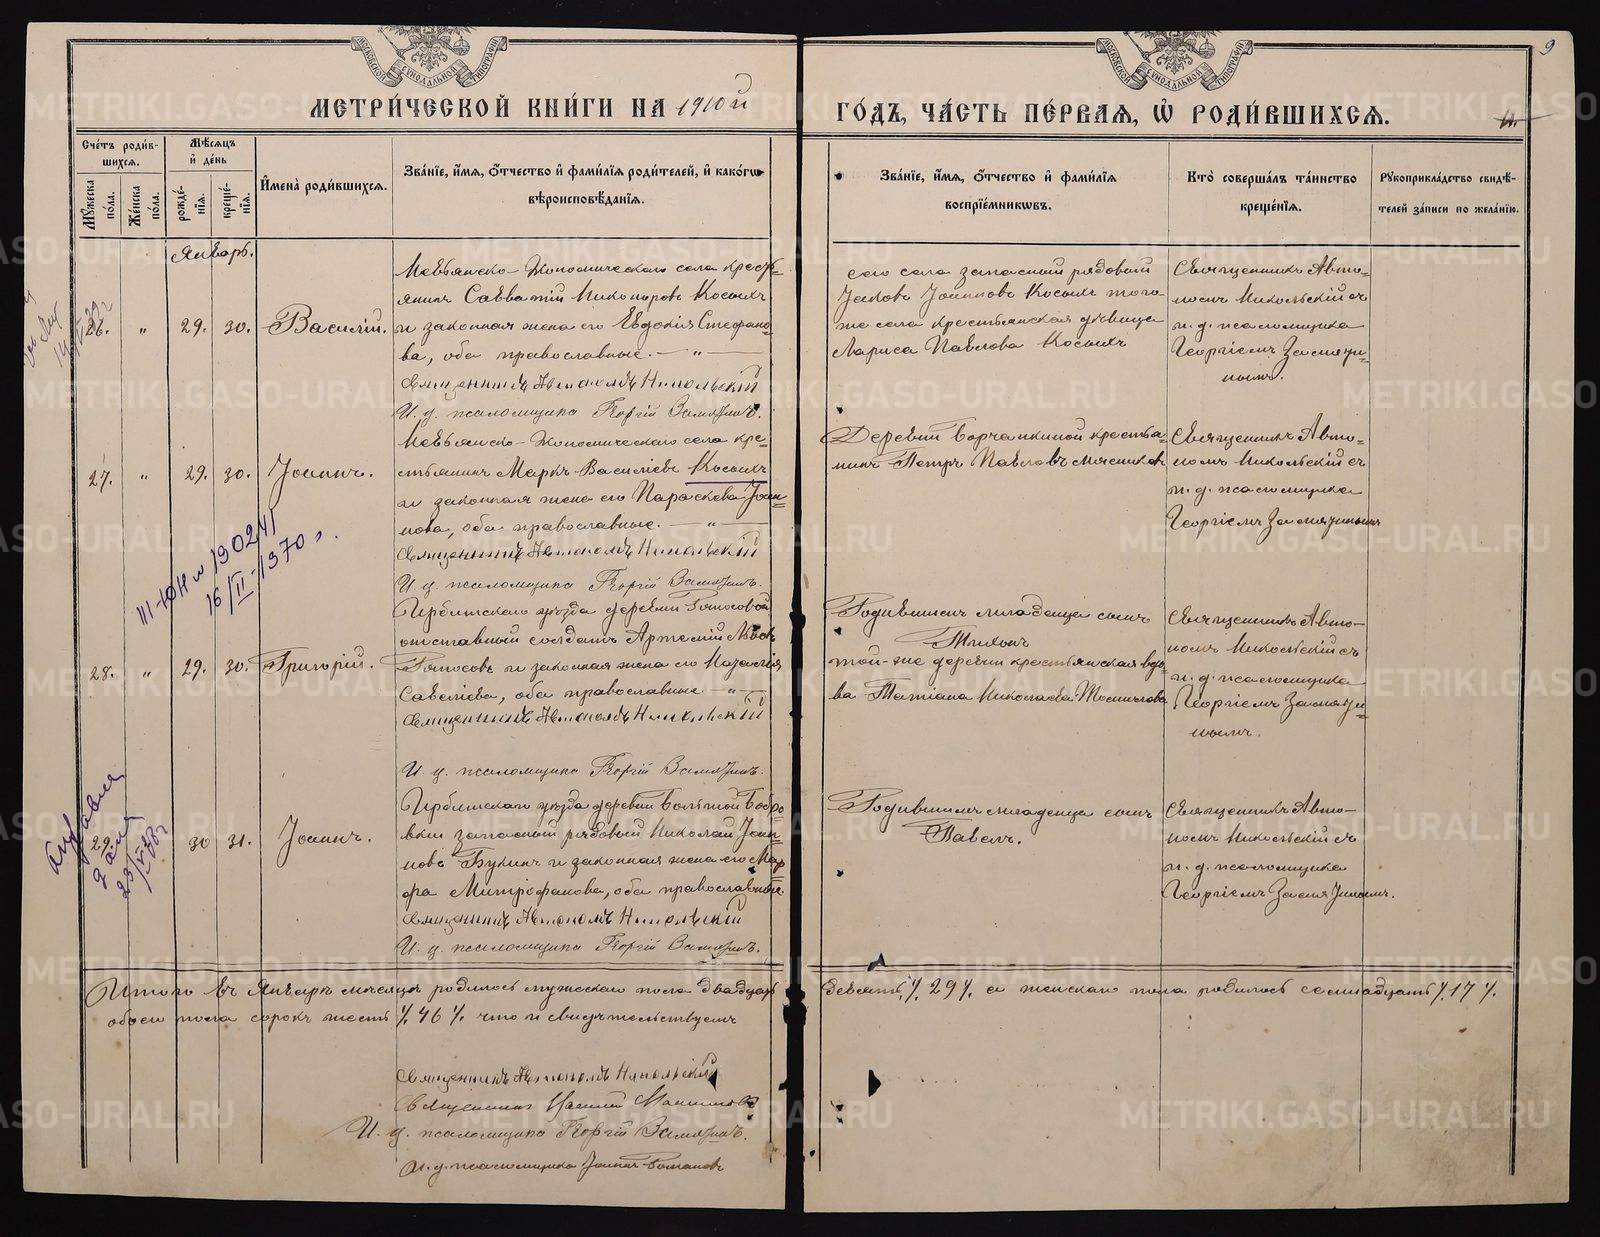 МОСКОВСКОЙ СѴНОДАЛЬНОЙ ТИПОГРАФІИ
МОСКОВСКОЙ СѴНОДАЛЬНОЙ ТИПОГРАФІИ
9
МЕТРИ́ЧЕСКОЙ КНИ́ГИ НА 1910й ГО́ДЪ, ЧА́СТЬ ПЕ́РВАѦ, Ѡ҆ РОДИ́ВШИХСѦ.
Сче́тъ роди́в-
шихсѧ.
Мꙋ́жеска по́ла.
Же́нска по́ла.
Мѣ́сѧцъ и҆ де́нь
рожде́-
нїѧ.
креще́-
нїѧ.
И҆мена̀ роди́вшихсѧ.
Зва́нїе, и҆́мѧ, ѻ҆́тчество и҆ фами́лїѧ роди́телей, и҆ како́гѡ
вѣроисповѣ́данїѧ.
Зва́нїе, и҆́мѧ, ѻ҆́тчество и҆ фами́лїѧ
воспрїе́мникѡвъ.
Кто̀ соверша́лъ та́инство
креще́нїѧ.
Рꙋкоприкла́дство свидѣ́-
телей за́писи по жела́нїю.
Январь.
26. " 29. 30. Василій.
Невьянско-Экономическаго села кресть=
янинъ Савватій Никоноровъ Косыхъ
и законная жена его Евдокія Стефано=
ва, оба православные. — " —
Священникъ Автономъ Никольскій
И. д. псаломщика Георгій Замятинъ.
сего села запасный рядовый
Іаковъ Іоанновъ Косыхъ того-
же села крестьянская дѣвица
Лариса Павлова Косыхъ
Священникъ Авто-
номъ Никольскій съ
и. д. псаломщика
Георгіемъ Замяти=
нымъ.
27. " 29. 30. Іоаннъ.
Невьянско-Экономическаго села кре=
стьянинъ Маркъ Василіевъ Косыхъ
и законная жена его Параскева Іоан=
нова, оба православные. — " —
Священникъ Автономъ Никольскій
И. д. псаломщика Георгій Замятинъ.
Деревни крестья=
нинъ Петръ Павловъ Мясниковъ
Священникъ Авто=
номъ Никольскій съ
и. д. псаломщика
Георгіемъ Замятинымъ
III-ЮН № 190241
16/II-1970 г.
28. " 29. 30. Григорій.
Ирбитскаго уѣзда деревни
отставный солдатъ Артемій
и законная жена его
Савеліева, оба православные. — " —
Священникъ Автономъ Никольскій
И. д. псаломщика Георгій Замятинъ.
Родившимъ младенца сынъ
Тихонъ
той-же деревни крестьянская вдо=
ва Татіана Николаева
Священникъ Авто-
номъ Никольскій съ
и. д. псаломщика
Георгіемъ Замяти=
нымъ.
29. " 30 31. Іоаннъ.
Ирбитскаго уѣзда деревни Большой Бобро
вки запасный рядовый Николай Іоан=
новъ Букинъ и законная жена его Мар=
фа Митрофанова, оба православные.
Священникъ Автономъ Никольскій
И. д. псаломщика Георгій Замятинъ.
Родившимъ младенца сынъ
Павелъ.
Священникъ Авто-
номъ Никольскій съ
и. д. псаломщика
Георгіемъ Замятинымъ.
Итого въ Январѣ мѣсяцѣ родилось мужескаго пола двадцать девять % 29 %, а женскаго пола родилось семнадцать % 17 %.
обоего пола сорокъ шесть % 46 % что и свидѣтельствуемъ
Священникъ Автономъ Никольскій
Священникъ
И. д. псаломщика Георгій Замятинъ.
И. д. псаломщика Іоаннъ Романовъ
METRIKI.GASO-URAL.RU